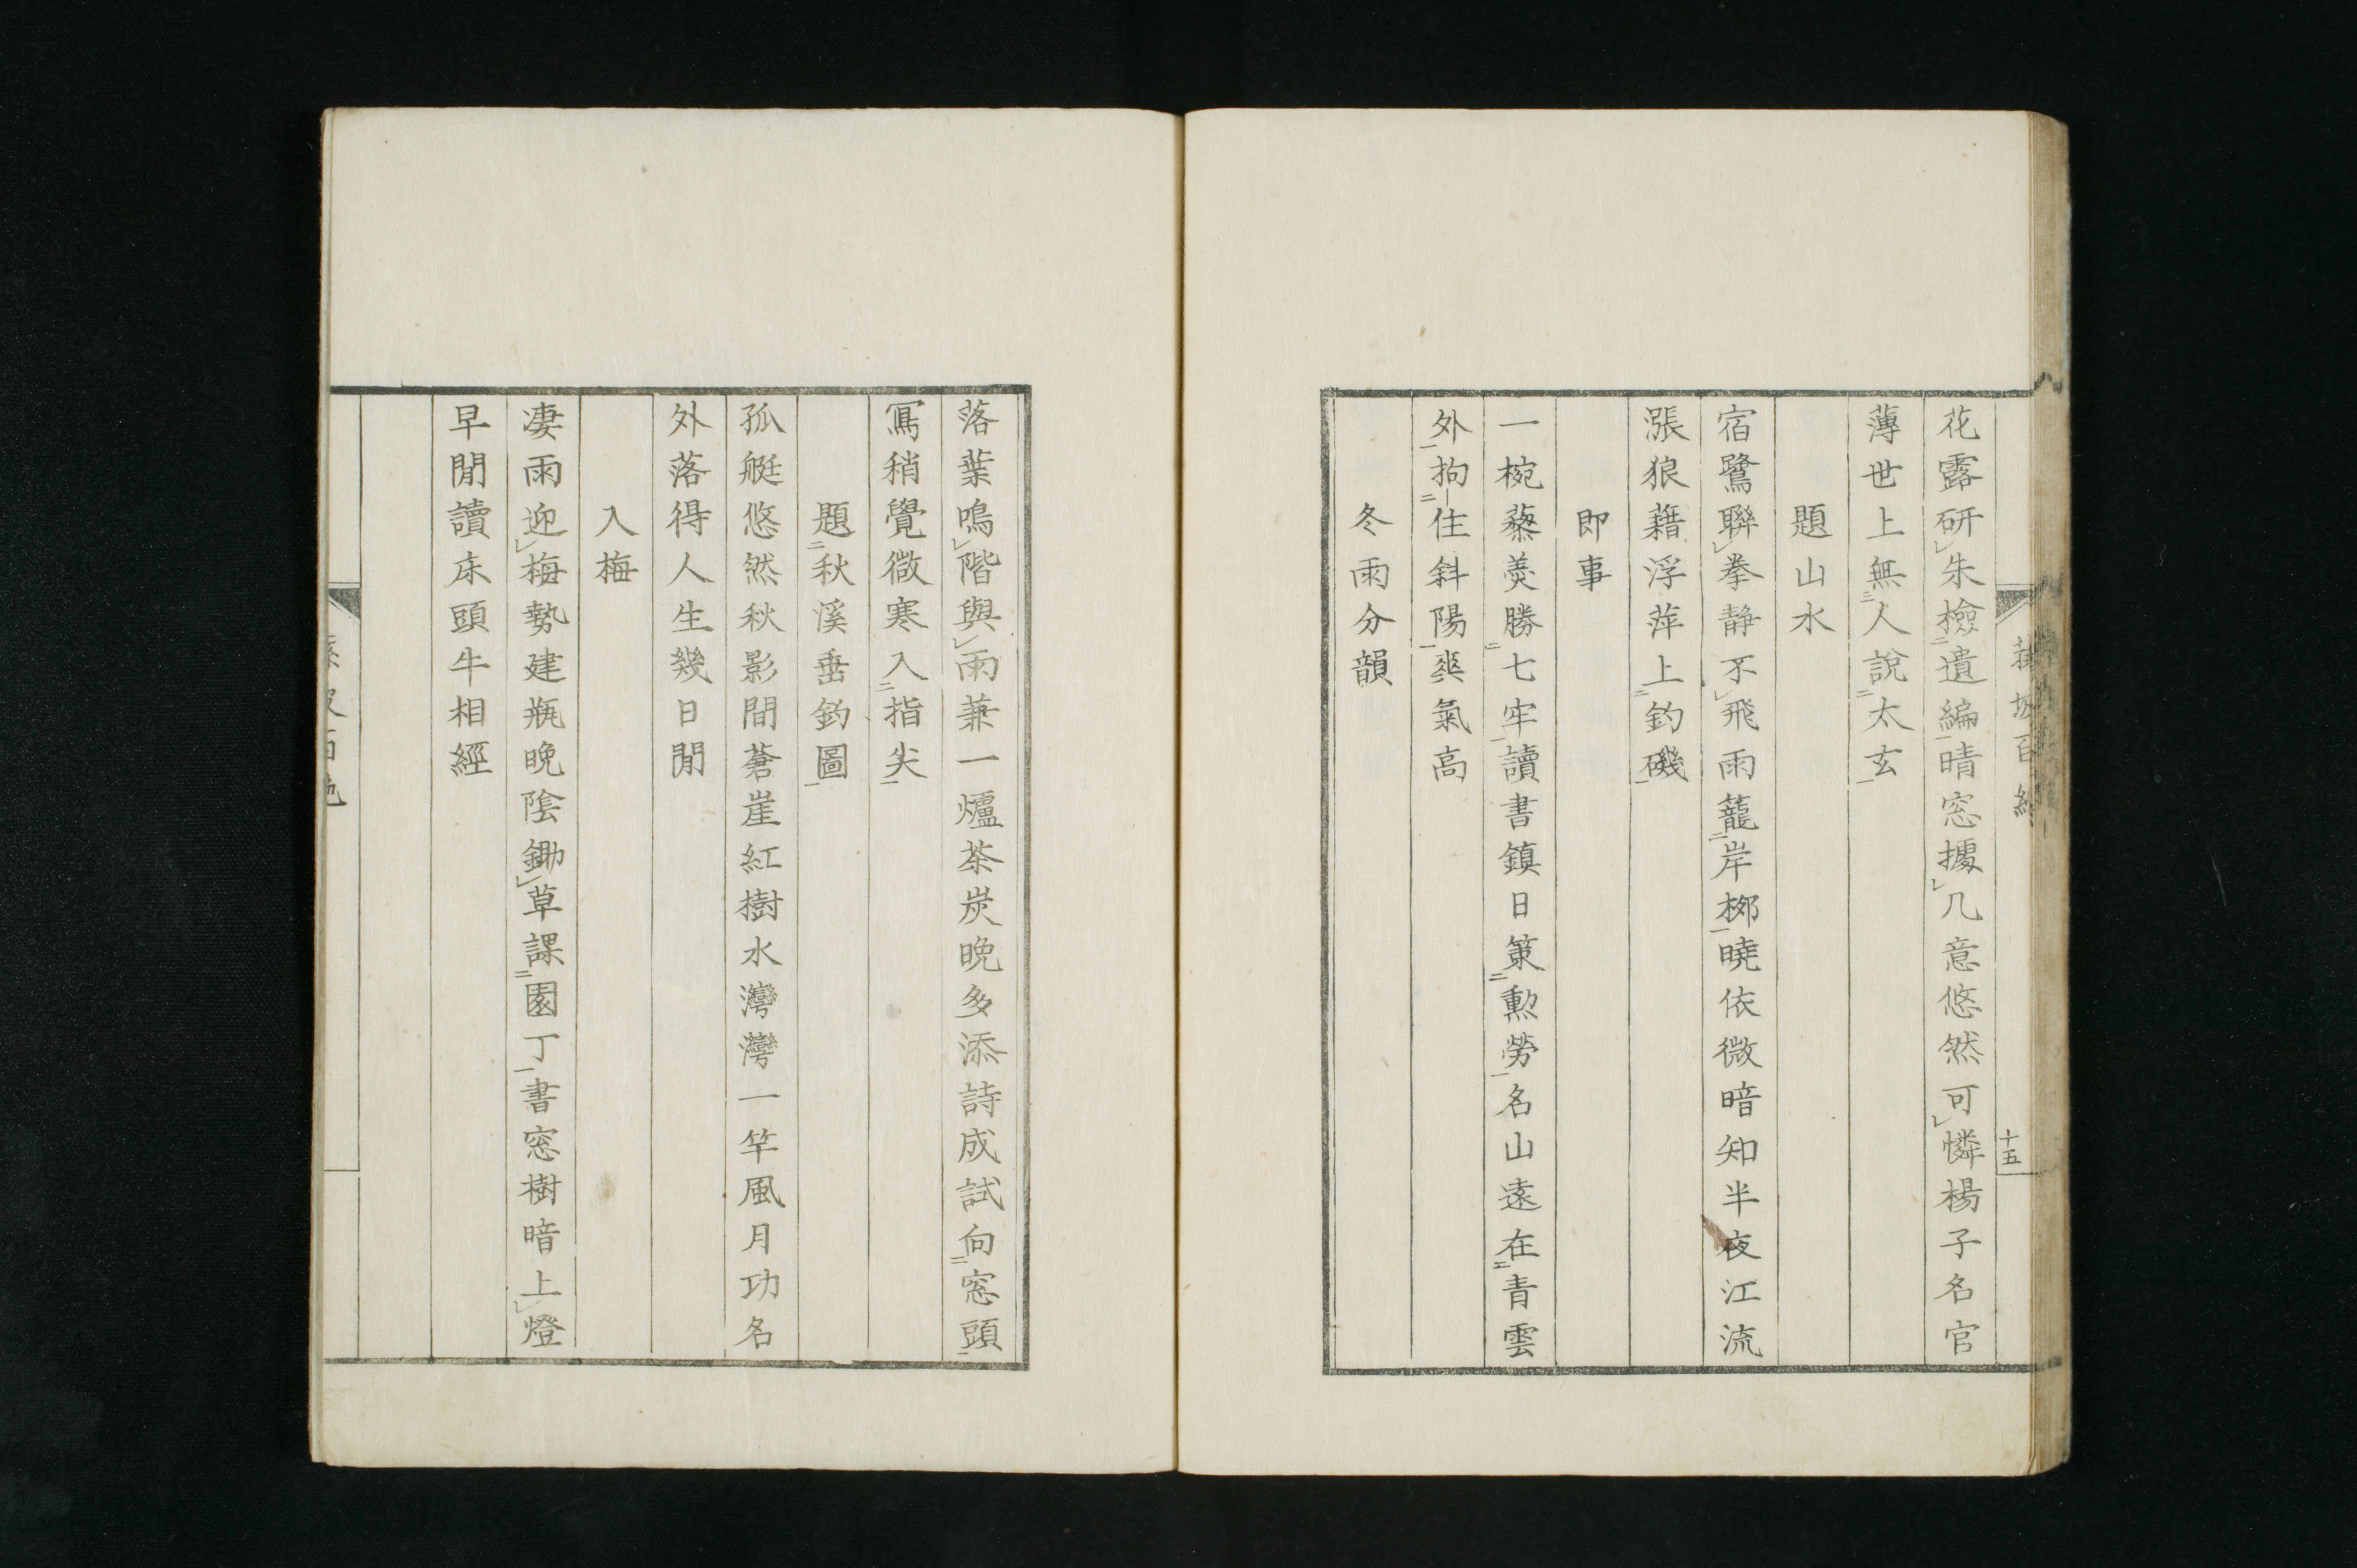 花露研朱檢遺編晴窓據几意悠然可憐楊子名官
薄世上無人說太玄
題山水
宿鷺聯拳静不飛雨籠岸柳曉依微暗知半夜江流
漲狼藉浮萍上釣磯
即事
一椀藜羹勝七牢讀書鎮日策勲勞名山遠在青雲
外拘住斜陽爽氣高
冬雨分韻
十五
落葉鳴階與雨兼一爐茶炭晚多添詩成試向窓頭
寫稍覺微寒入指尖
題秋溪垂釣圖
孤艇悠然秋影間蒼崖紅樹水灣灣一竿風月功名
外落得人生幾日閒
入梅
凄雨迎梅勢建瓶晚陰鋤草課園丁書窓樹暗上燈
早閒讀床頭牛相經